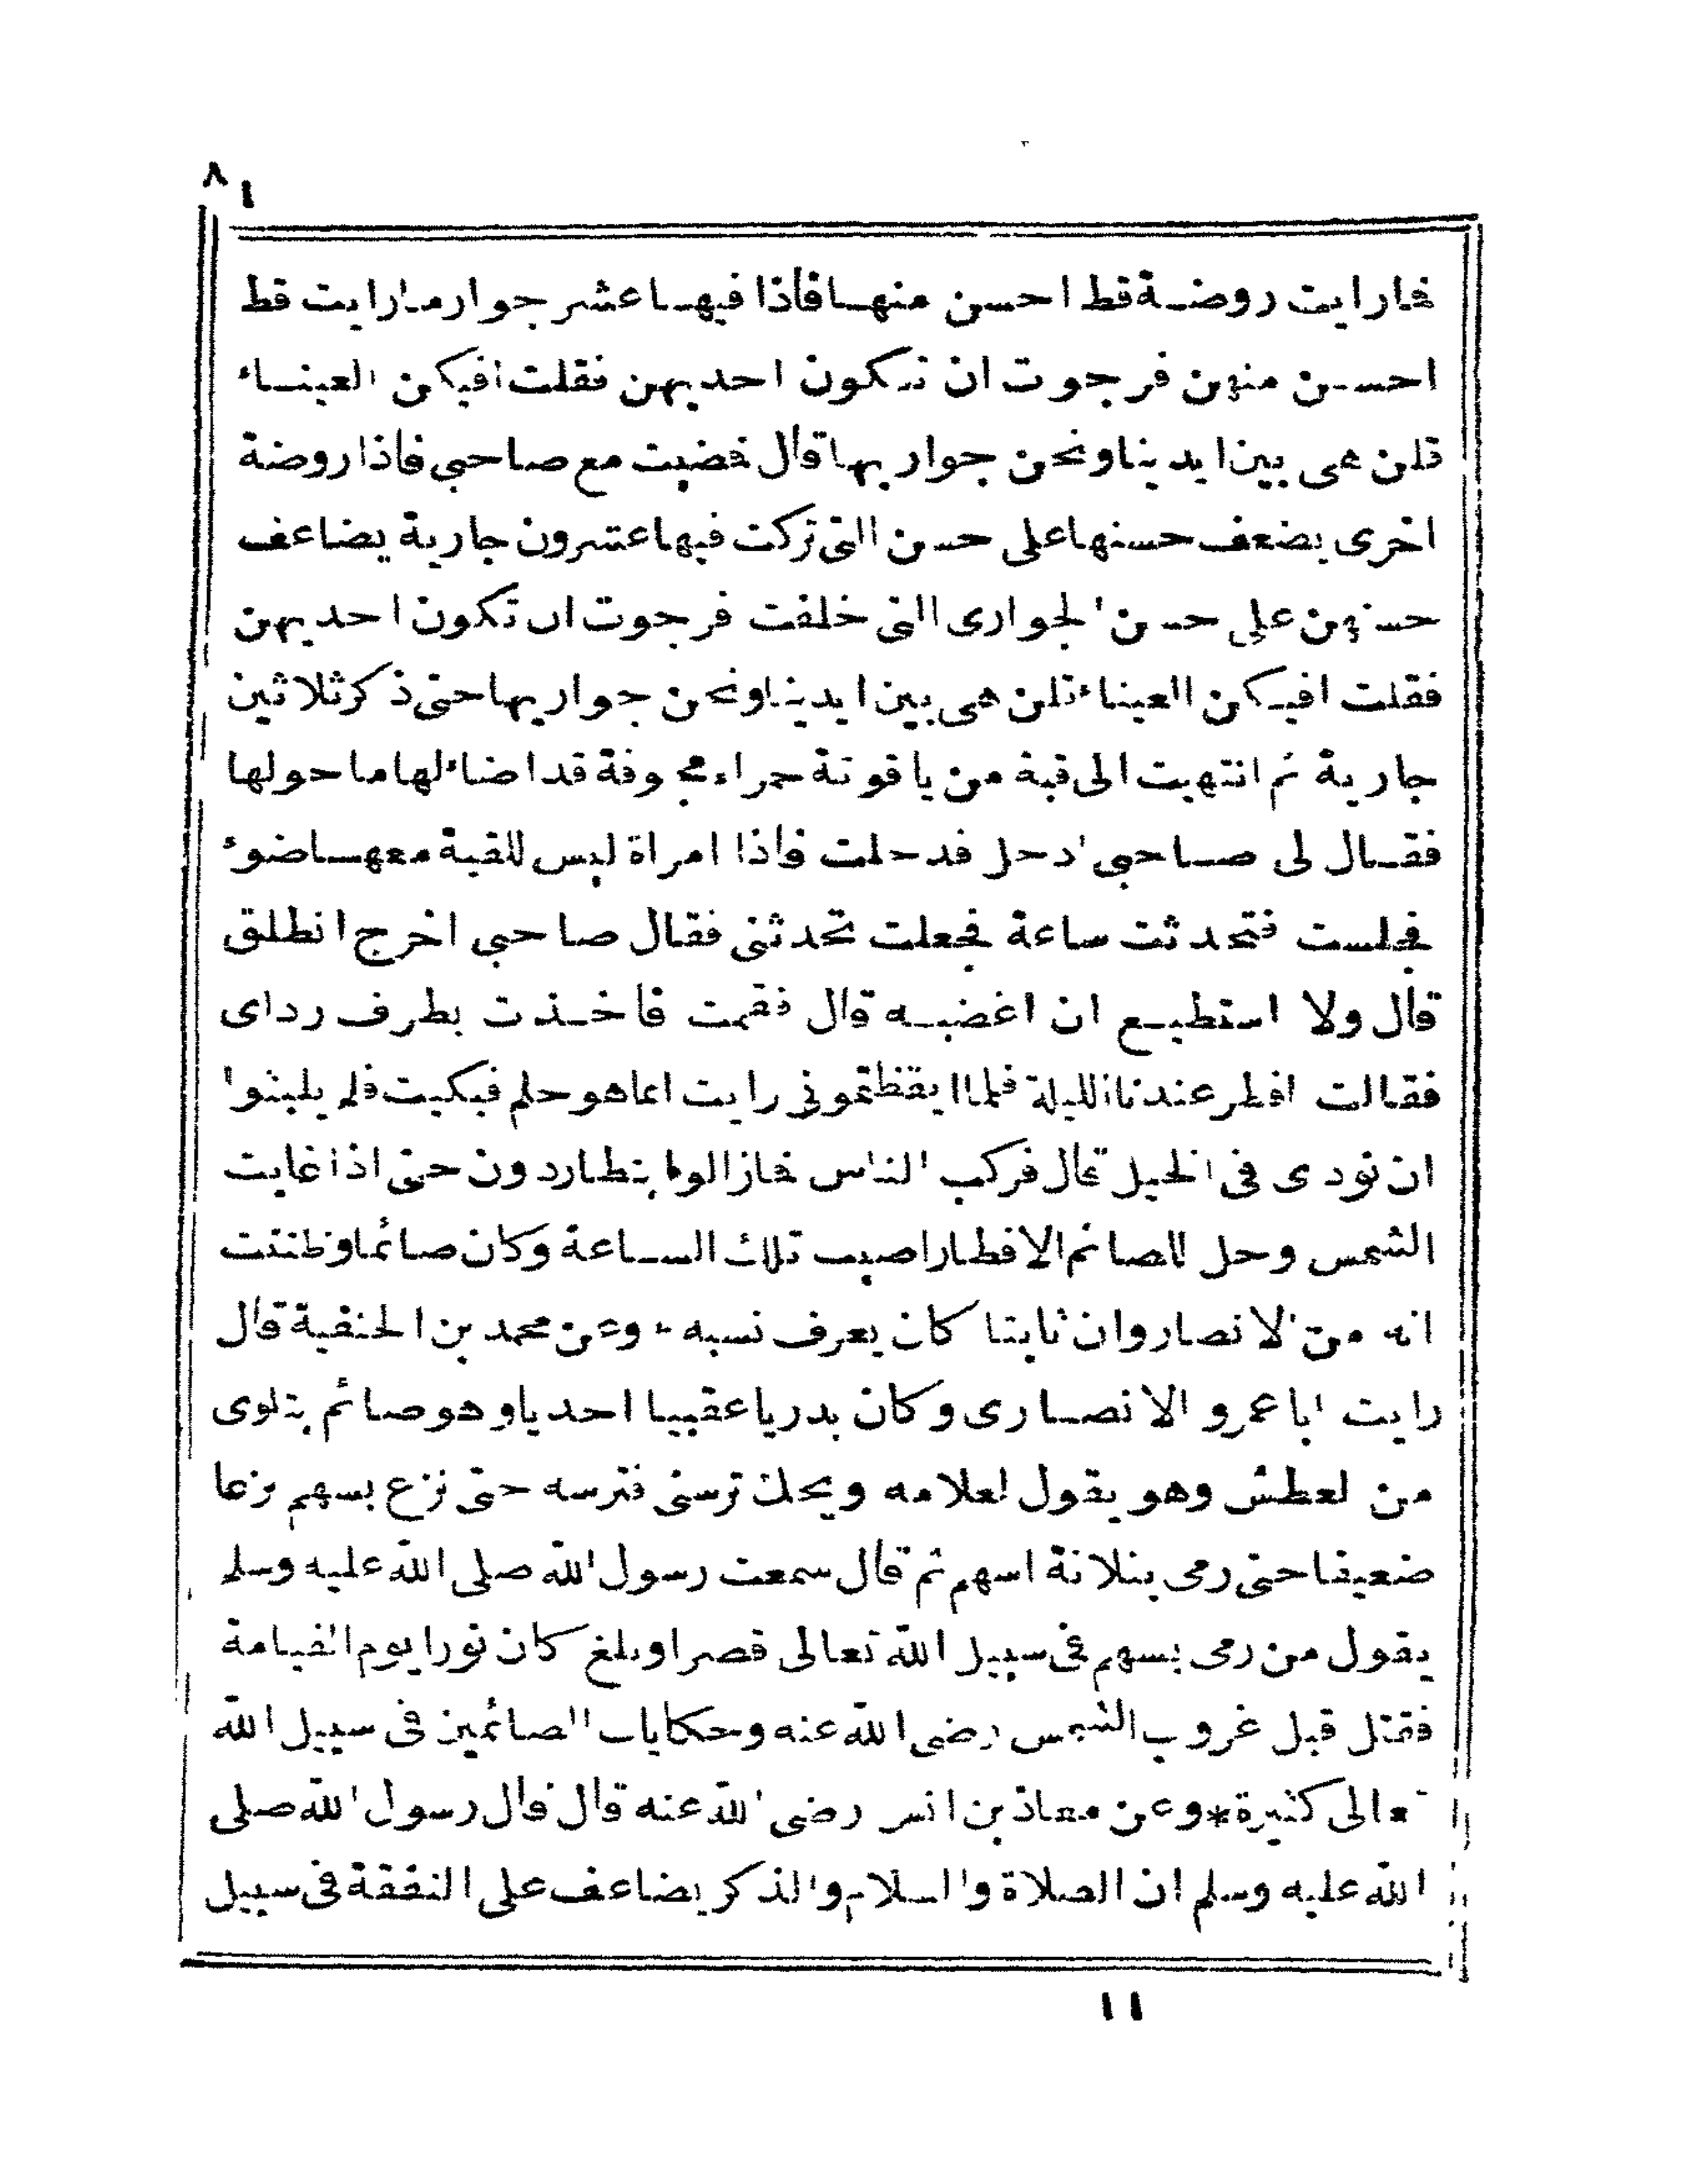 ٨١
فما رايت روضة قط احسن منها فاذا فيها عشر جوار ما رايت قط
احسن منهن فرجوت ان تكون احديهن فقلت افيكن العيناء
قلن هى بين ايدينا ونحن جواريها قال فمضيت مع صاحبى فاذا روضة
اخرى يضعف حسنها على حسن التى تركت فيها عشرون جارية يضاعف
حسنهن على حسن الجوارى التى خلفت فرجوت ان تكون احديهن
فقلت افيكن العيناء قلن هى بين ايدينا ونحن جواريها حتى ذكر ثلاثين
جارية ثم انتهيت الى قبة من ياقوتة حمراء مجوفة قد اضاء لها ما حولها
فقال لى صاحبى ادخل فدخلت فاذا امراة ليس للقبة معها ضوء
فجلست فتحدثت ساعة فجعلت تحدثنى فقال صاحبى اخرج انطلق
قال ولا استطيع ان اغضبه قال فقمت فاخذت بطرف رداى
فقالت افطر عندنا الليلة فلما ايقظتمونى رايت انما هو حلم فبكيت فلم يلبثوا
ان نودى فى الخيل قال فركب الناس فما زالوا يتطاردون حتى اذا غابت
الشمس وحل للصائم الافطار اصيب تلك الساعة وكان صائما وظننت
انه من الانصار وان ثابتا كان يعرف نسبه * وعن محمد بن الحنفية قال
رايت ابا عمرو الانصارى وكان بدريا عقبيا احديا وهو صائم يتلوى
من العطش وهو يقول لغلامه ويحك ترسنى فترسه حتى نزع بسهم نزعا
ضعيفا حتى رمى بثلاثة اسهم ثم قال سمعت رسول الله صلى الله عليه وسلم
يقول من رمى بسهم فى سبيل الله تعالى قصر او بلغ كان نورا يوم القيامة
فقتل قبل غروب الشمس رضى الله عنه وحكايات الصائمين فى سبيل الله
تعالى كثيرة * وعن معاذ بن انس رضى الله عنه قال قال رسول الله صلى
الله عليه وسلم ان الصلاة والسلام والذكر يضاعف على النفقة فى سبيل
١١